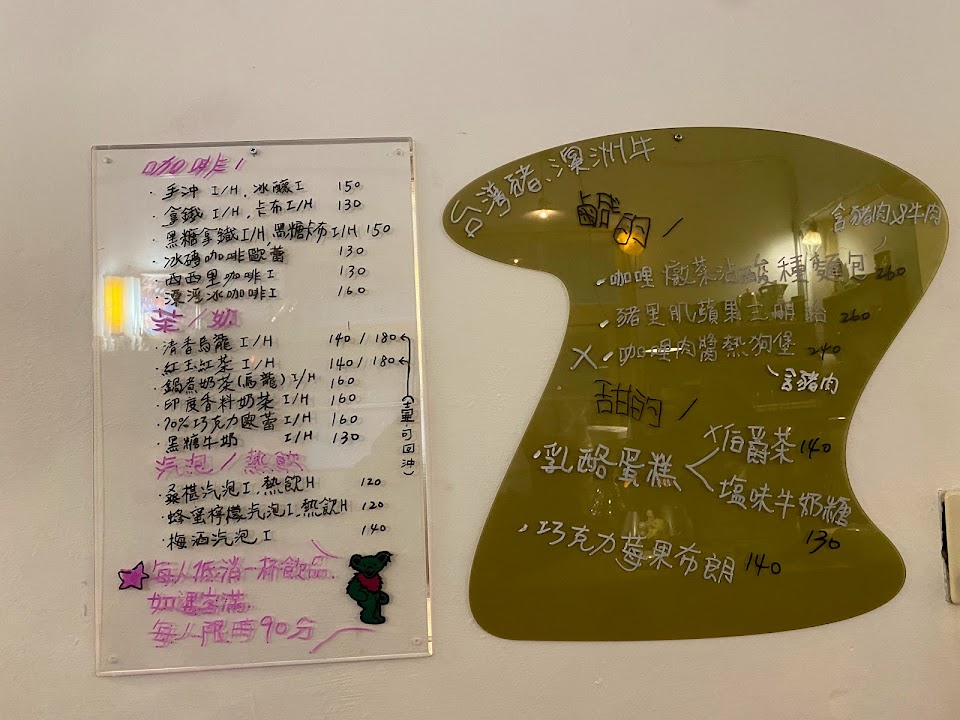 咖啡/
·手沖 I/H、冰釀 I 150
·拿鐵 I/H、卡布 I/H 130
·黑糖拿鐵 I/H、黑糖卡布 I/H 150
·冰磚咖啡歐蕾 130
·西西里咖啡 I 130
·漂浮冰咖啡 I 160
茶/奶
·清香烏龍 I/H 140/180
·紅玉紅茶 I/H 140/180
(壺可回沖)
·鍋煮奶茶(烏龍) I/H 160
·印度香料奶茶 I/H 160
·70%巧克力歐蕾 I/H 160
·黑糖牛奶 I/H 130
汽泡/熱飲
·桑椹汽泡 I、熱飲 H 120
·蜂蜜檸檬汽泡 I、熱飲 H 120
·梅酒汽泡 I 140
每人低消一杯飲品
如遇客滿
每人限時90分
台灣豬、澳洲牛
鹹的/
含豬肉&牛肉
·咖哩燉菜沾酸種麵包 260
·豬里肌蘋果三明治 260
X·咖哩肉醬熱狗堡 240
含豬肉
甜的/
乳酪蛋糕
X伯爵茶 140
塩味牛奶糖
130
·巧克力莓果布朗 140